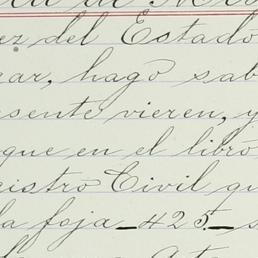 ez del Estado
car, hago sab
esente vieren, y
que en el libro
gistro Civil qu
la foja 425 s